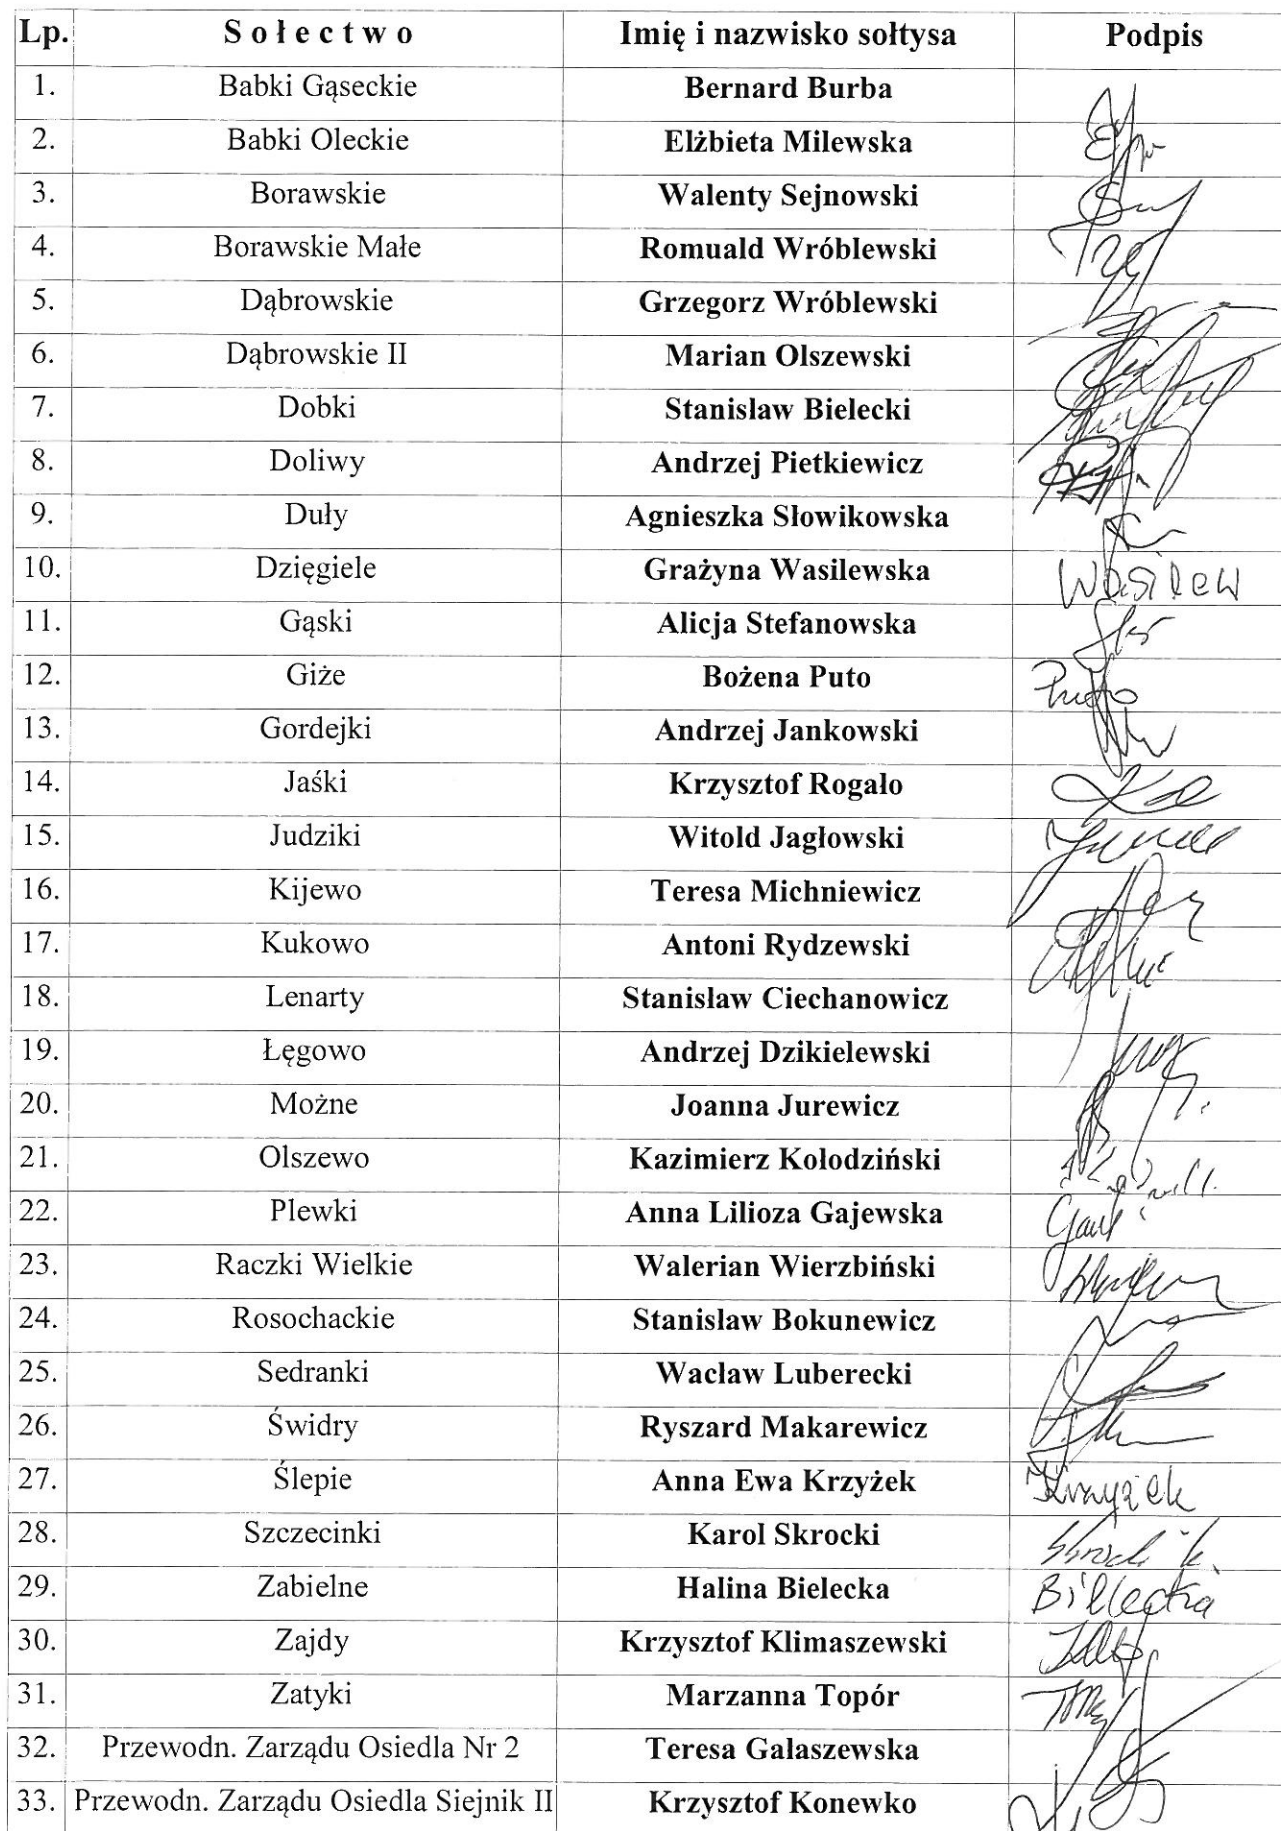 Lp. Sołectwo Imię i nazwisko sołtysa Podpis
1. Babki Gąseckie Bernard Burba
2. Babki Oleckie Elżbieta Milewska
3. Borawskie Walenty Sejnowski
4. Borawskie Małe Romuald Wróblewski
5. Dąbrowskie Grzegorz Wróblewski
6. Dąbrowskie II Marian Olszewski
7. Dobki Stanisław Bielecki
8. Doliwy Andrzej Pietkiewicz
9. Duły Agnieszka Słowikowska
10. Dzięgiele Grażyna Wasilewska Wasilew
11. Gąski Alicja Stefanowska
12. Giże Bożena Puto Puto
13. Gordejki Andrzej Jankowski
14. Jaśki Krzysztof Rogało
15. Judziki Witold Jagłowski
16. Kijewo Teresa Michniewicz
17. Kukowo Antoni Rydzewski
18. Lenarty Stanisław Ciechanowicz
19. Łęgowo Andrzej Dzikielewski
20. Możne Joanna Jurewicz
21. Olszewo Kazimierz Kołodziński
22. Plewki Anna Lilioza Gajewska
23. Raczki Wielkie Walerian Wierzbiński
24. Rosochackie Stanisław Bokunewicz
25. Sedranki Wacław Luberecki
26. Świdry Ryszard Makarewicz
27. Ślepie Anna Ewa Krzyżek Krzyżek
28. Szczecinki Karol Skrocki
29. Zabielne Halina Bielecka Bielecka
30. Zajdy Krzysztof Klimaszewski
31. Zatyki Marzanna Topór
32. Przewodn. Zarządu Osiedla Nr 2 Teresa Gałaszewska
33. Przewodn. Zarządu Osiedla Siejnik II Krzysztof Konewko